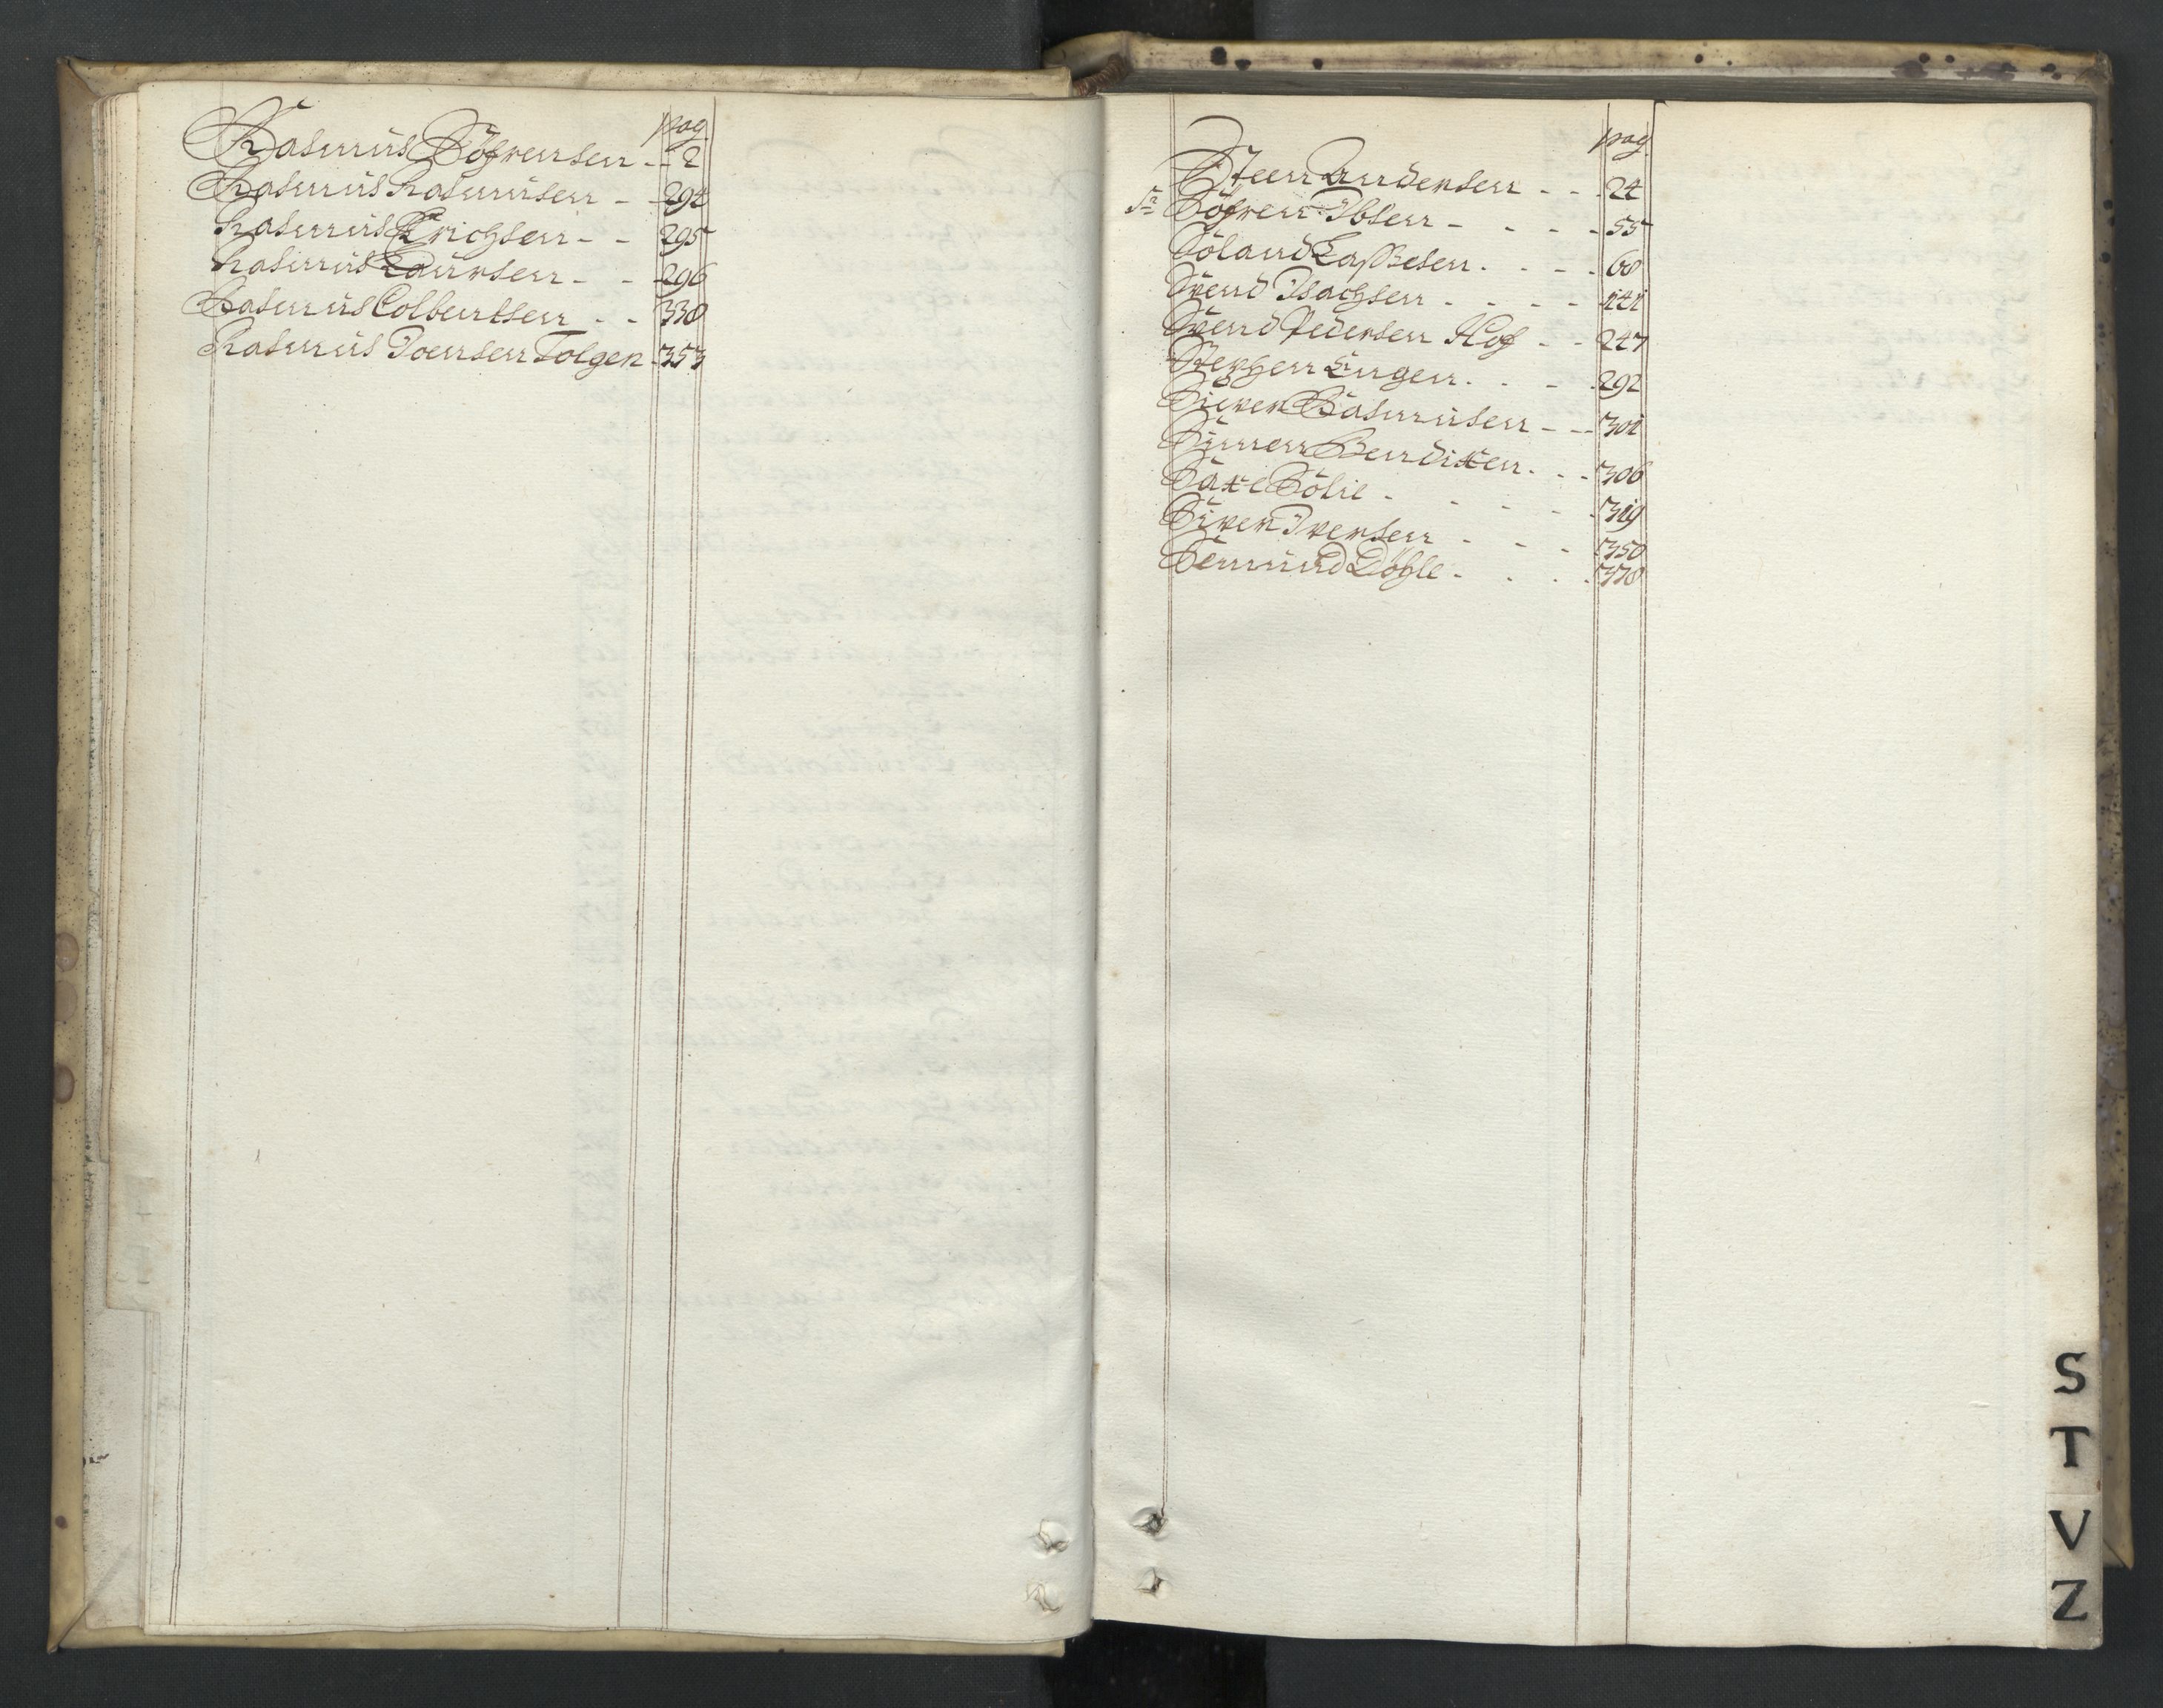 pag.
Rasmus Söfrensen - - 2
Rasmus Rasmusen - - 294
Rasmus Erichsen - - 295
Rasmus Laursen - - 296
Rasmus Colbentsen - - 338
Rasmus Joensen Tolgen - 353
pag.
Steen Andersen - - 24
Sr. Söfren Ibsen - - - - 55
Söland Lassesen - - - - 68
Svend Isachsen - - - - 141
Svend Pedersen Hof - - 247
Stephen Engen - - - 292
Siever Rasmusen - - - 301
Simen Bendixen - - - 306
Saxe Sölie - - - - - 319
Siver Iversen - - - - 350
Semund Döhle - - - - 378
S
T
V
Z